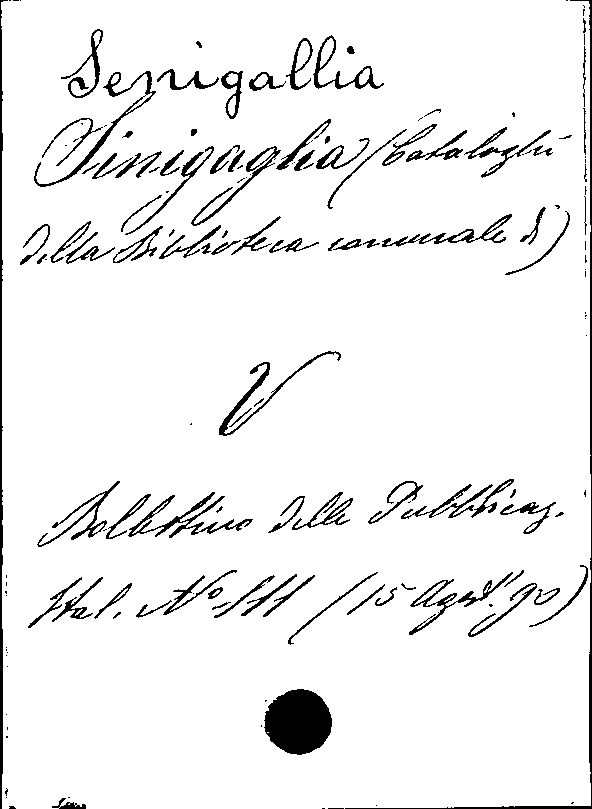 Senigallia
Sinigaglia (Cataloghi
della Biblioteca comunale di)
V
Bollettino delle Pubblicaz.
Ital. Nº 111 (15 Agost. 90)